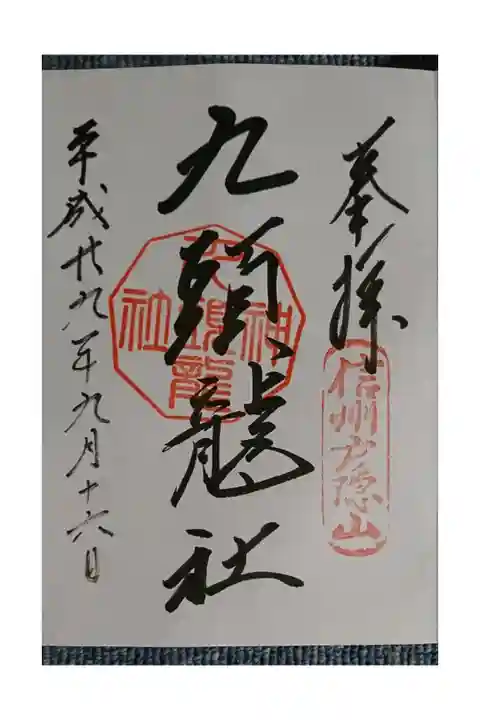 奉拝
信州戸隠山
九頭龍社
九頭龍神社
平成廿九年九月十六日